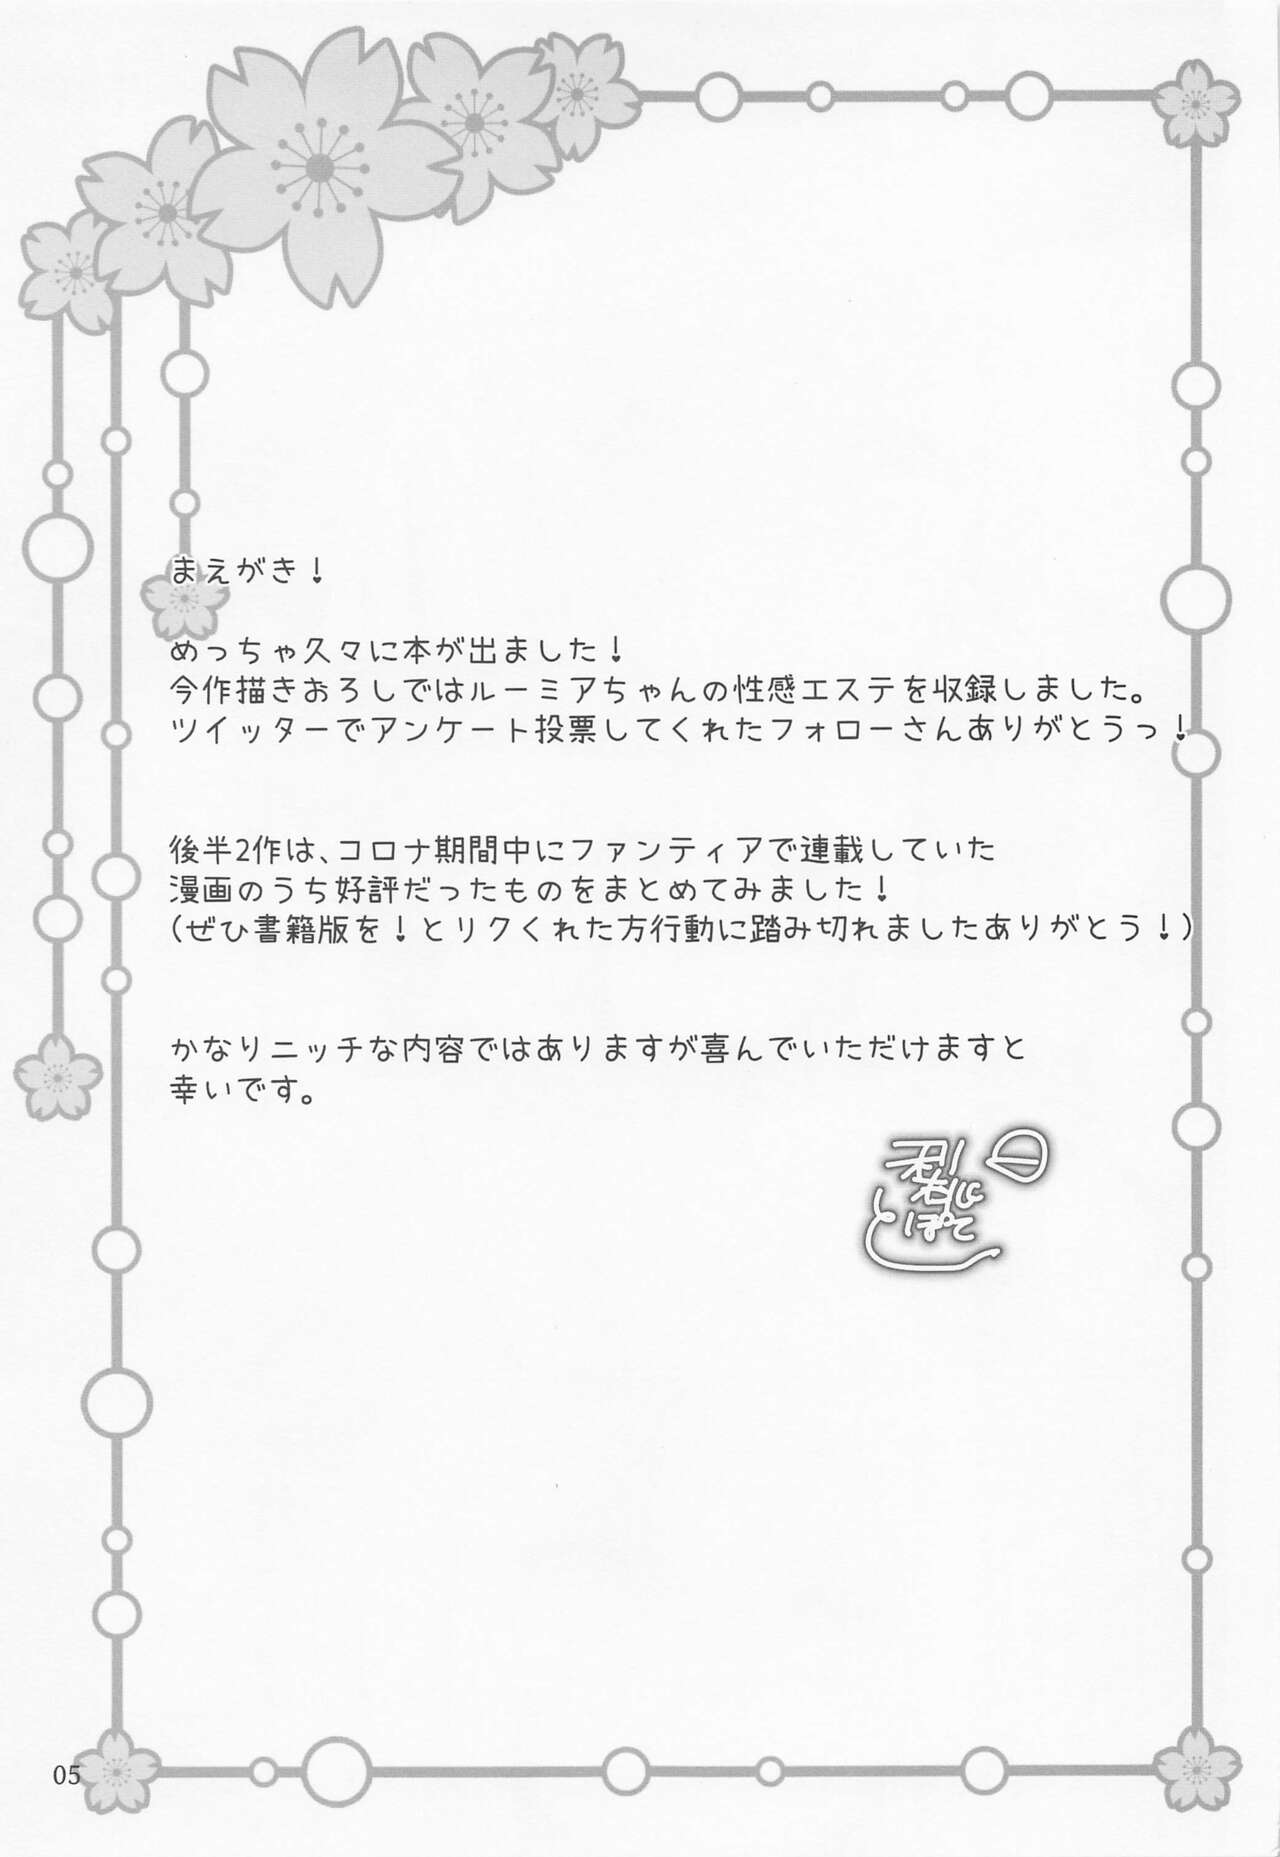 まえがき！
めっちゃ久々に本が出ました！
今作描きおろしではルーミアちゃんの性感エステを収録しました。
ツイッターでアンケート投票してくれたフォローさんありがとうっ！
後半2作は、コロナ期間中にファンティアで連載していた
漫画のうち好評だったものをまとめてみました！
（ぜひ書籍版を！とリクくれた方行動に踏み切れましたありがとう！）
かなりニッチな内容ではありますが喜んでいただけますと
幸いです。
05